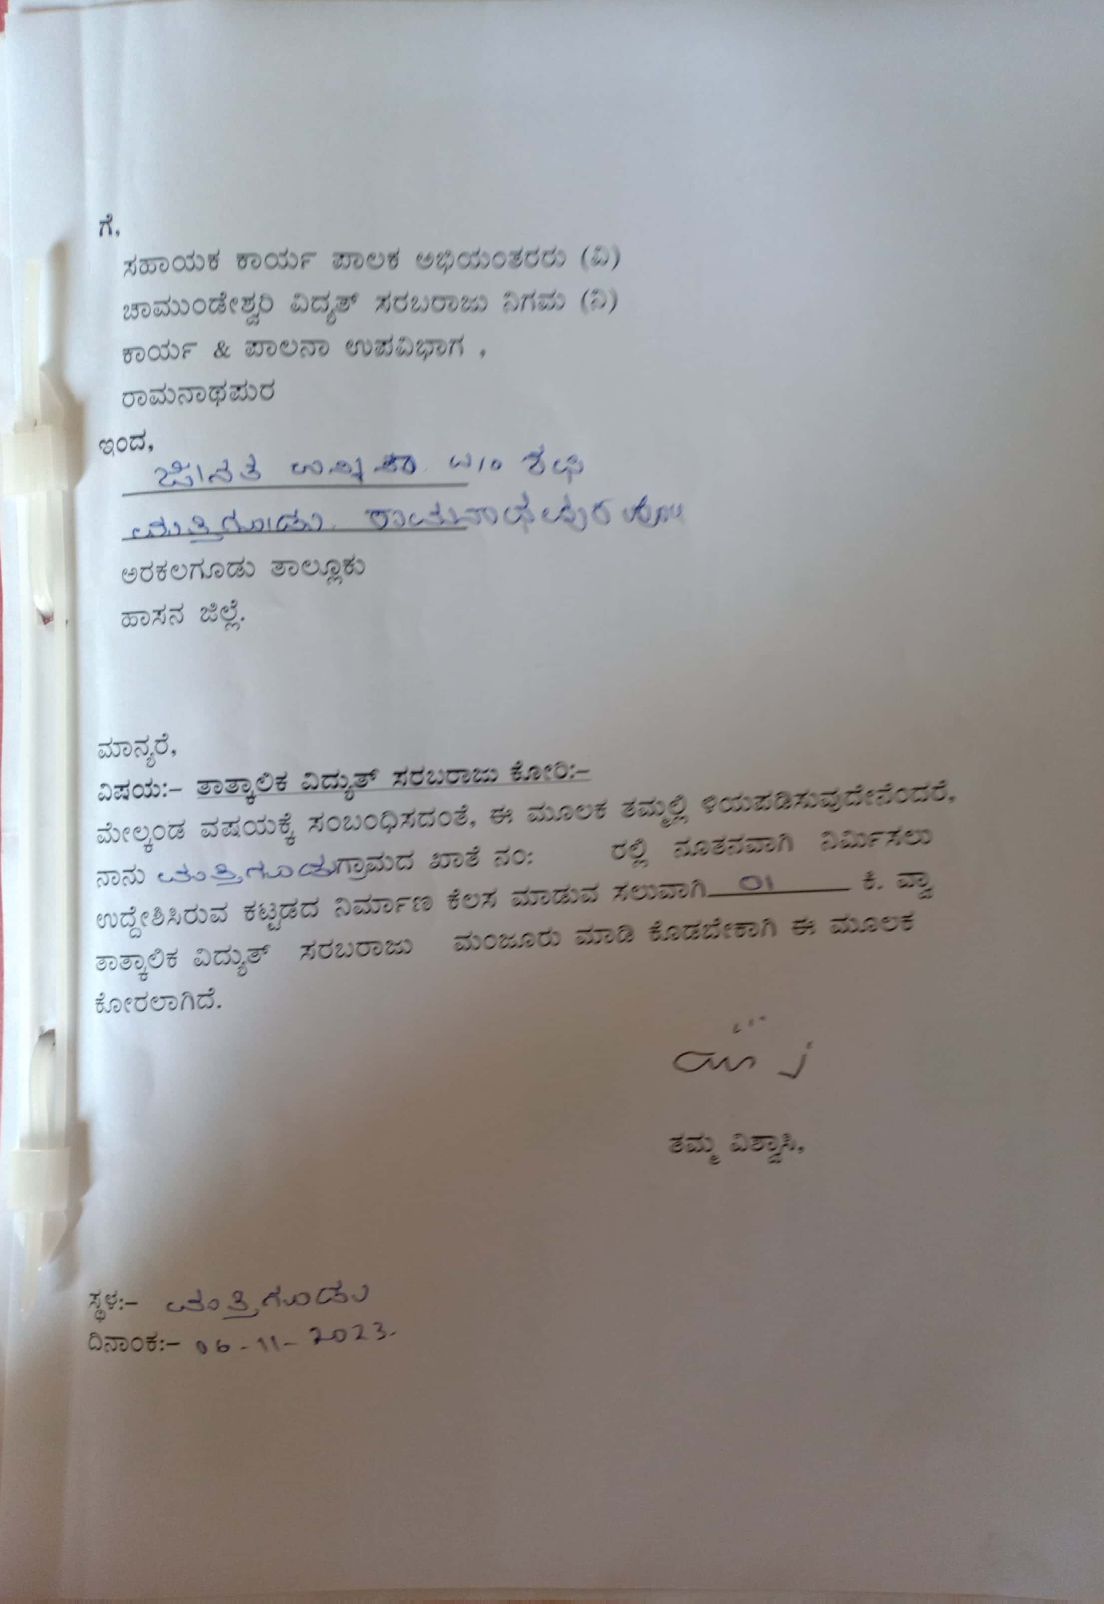 ಗೆ,
ಸಹಾಯಕ ಕಾರ್ಯ ಪಾಲಕ ಅಭಿಯಂತರರು (ವಿ)
ಚಾಮುಂಡೇಶ್ವರಿ ವಿದ್ಯತ್ ಸರಬರಾಜು ನಿಗಮ (ನಿ)
ಕಾರ್ಯ & ಪಾಲನಾ ಉಪವಿಭಾಗ ,
ರಾಮನಾಥಪುರ
ಇಂದ,
W/o ಶಫಿ
ಮತ್ತಿಗೋಡು ರಾಮನಾಥಪುರ
ಅರಕಲಗೂಡು ತಾಲ್ಲೂಕು
ಹಾಸನ ಜಿಲ್ಲೆ.
ಮಾನ್ಯರೆ,
ವಿಷಯ:– ತಾತ್ಕಾಲಿಕ ವಿದ್ಯುತ್ ಸರಬರಾಜು ಕೋರಿ:–
ಮೇಲ್ಕಂಡ ವಷಯಕ್ಕೆ ಸಂಬಂಧಿಸದಂತೆ, ಈ ಮೂಲಕ ತಮ್ಮಲ್ಲಿ ಳಿಯಪಡಿಸುವುದೇನೆಂದರೆ,
ನಾನು ಮತ್ತಿಗೋಡು ಗ್ರಾಮದ ಖಾತೆ ನಂ: ರಲ್ಲಿ ನೂತನವಾಗಿ ನಿರ್ಮಿಸಲು
ಉದ್ದೇಶಿಸಿರುವ ಕಟ್ಟಡದ ನಿರ್ಮಾಣ ಕೆಲಸ ಮಾಡುವ ಸಲುವಾಗಿ 01 ಕಿ. ವ್ಯಾ
ತಾತ್ಕಾಲಿಕ ವಿದ್ಯುತ್ ಸರಬರಾಜು ಮಂಜೂರು ಮಾಡಿ ಕೊಡಬೇಕಾಗಿ ಈ ಮೂಲಕ
ಕೋರಲಾಗಿದೆ.
ತಮ್ಮ ವಿಶ್ವಾಸಿ,
ಸ್ಥಳ:– ಮತ್ತಿಗೋಡು
ದಿನಾಂಕ:– 06-11-2023.